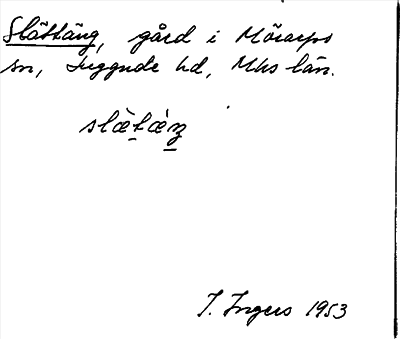 Slättäng, gård i Mörarps
sn, Luggude hd, Mhs län.
slæ̀tæ̀ŋ
I. Ingers 1953